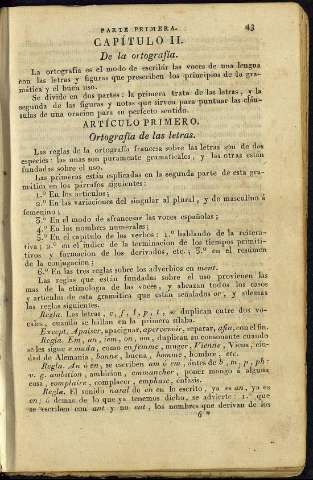 PARTE PRIMERA. 43
CAPÍTULO II.
De la ortografía.
La ortografía es el modo de escribir las voces de una lengua
con las letras y figuras que prescriben los principios de la gra-
mática y el buen uso.
Se divide en dos partes: la primera trata de las letras, y la
segunda de las figuras y notas que sirven para puntuar las cláu-
sulas de una oracion para su perfecto sentido.
ARTÍCULO PRIMERO.
Ortografía de las letras.
Las reglas de la ortografía francesa sobre las letras son de dos
especies: las unas son puramente gramaticales, y las otras están
fundadas sobre el uso.
Las primeras están esplicadas en la segunda parte de esta gra-
mática en los párrafos siguientes:
1.º En los artículos;
2.º En las variaciones del singular al plural, y de masculino á
femenino;
3.º En el modo de afrancesar las voces españolas;
4.º En los nombres numerales;
5.º En el capítulo de los verbos: 1.º hablando de la reitera-
tiva; 2.º en el índice de la terminacion de los tiempos primiti-
vos y formacion de los derivados, etc.; 3.º en el resúmen
de la conjugacion;
6.º En las tres reglas sobre los adverbios en ment.
Las reglas que están fundadas sobre el uso provienen las
mas de la etimología de las voces, y abrazan todos los casos
y artículos de esta gramática que están señalados, y ademas
las reglas siguientes.
Regla. Las letras, c, f, l, p, t, se duplican entre dos vo-
cales, cuando se hallan en la primera sílaba.
Except. Apaiser, apaciguar, apercevoir, reparar, afin, con el fin.
Regla. Em, an, ien, on, um, duplican su consonante cuando
se les sigue e muda, como en femme, muger, Vienne, Viena,
dad de Alemania, bonne, buena, homme, hombre, etc.
Regla. An ó en, se escriben am ó em, antes de b, m, p, ph:
v. g. ambition, ambicion, emmancher, poner mango á alguna
cosa, complaire, complacer, emphase, énfasis.
Regla. El sonido nasal de an en lo escrito, ya es an, ya es
en, ó demas de lo que ya tenemos dicho, se advierte: 1.º que
se escriben con ant y no ent, los nombres que derivan de los
6*